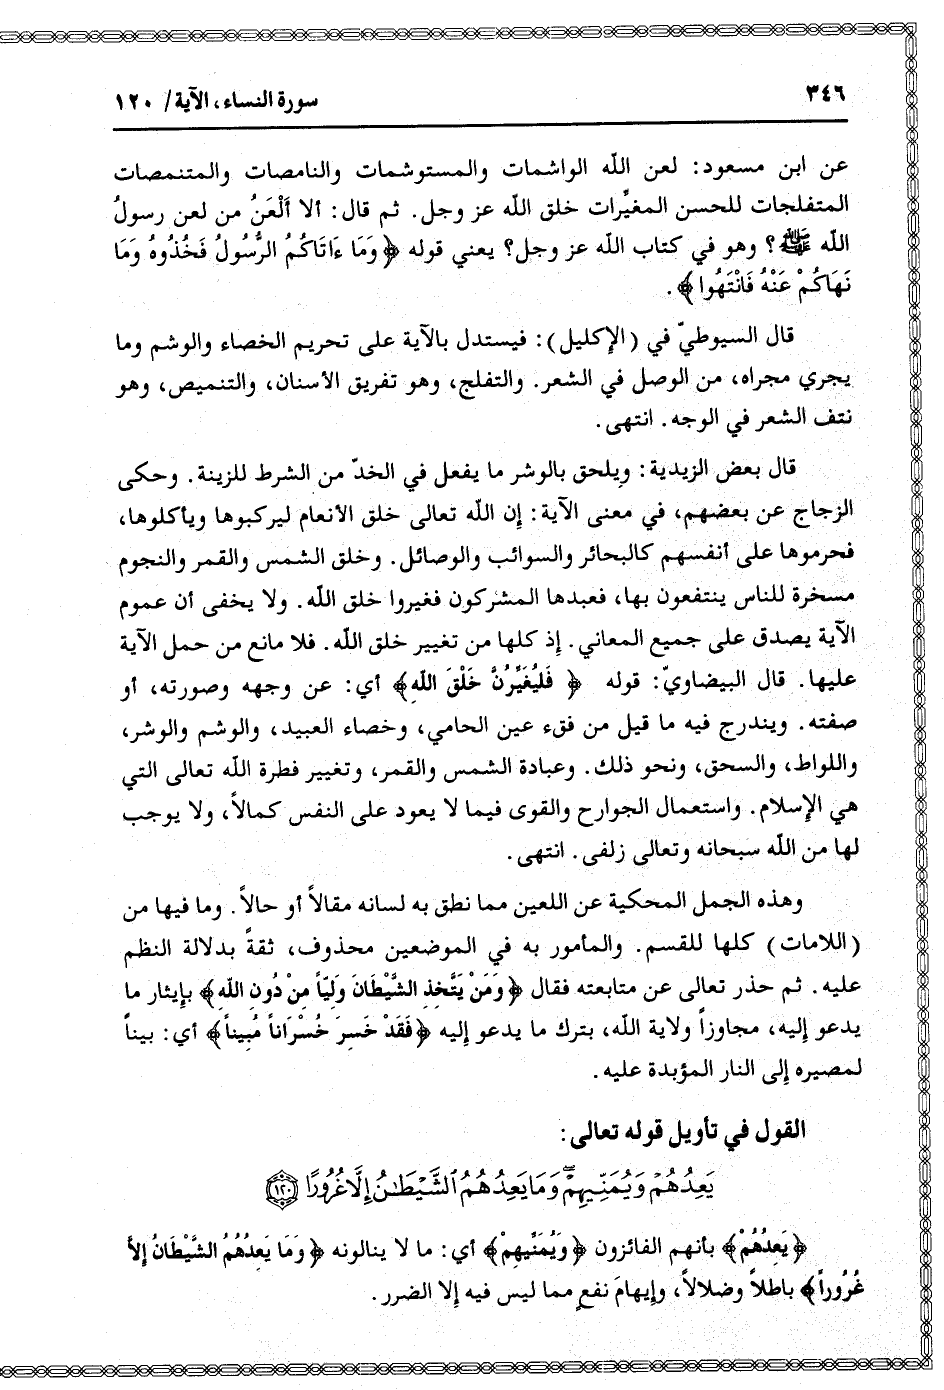 ٣٤٦
سورة النساء، الآية/ ١٢٠
عن ابن مسعود: لعن الله الواشمات والمستوشمات والنامصات والمتنمصات
المتفلجات للحسن المغيِّرات خلق الله عز وجل. ثم قال: ألا أَلْعَنُ من لعن رسولُ
الله ﷺ؟ وهو في كتاب الله عز وجل؟ يعني قوله ﴿وَمَا ءَاتَاكُمُ الرَّسُولُ فَخُذُوهُ وَمَا
نَهَاكُمْ عَنْهُ فَانْتَهُوا﴾.
قال السيوطيّ في (الإكليل): فيستدل بالآية على تحريم الخصاء والوشم وما
يجري مجراه، من الوصل في الشعر. والتفلج، وهو تفريق الأسنان، والتنميص، وهو
نتف الشعر في الوجه. انتهى.
قال بعض الزيدية: ويلحق بالوشر ما يفعل في الخدّ من الشرط للزينة. وحكى
الزجاج عن بعضهم، في معنى الآية: إن الله تعالى خلق الأنعام ليركبوها ويأكلوها،
فحرموها على أنفسهم كالبحائر والسوائب والوصائل. وخلق الشمس والقمر والنجوم
مسخرة للناس ينتفعون بها، فعبدها المشركون فغيروا خلق الله. ولا يخفى أن عموم
الآية يصدق على جميع المعاني. إذ كلها من تغيير خلق الله. فلا مانع من حمل الآية
عليها. قال البيضاويّ: قوله ﴿ فَلَيُغَيِّرُنَّ خَلْقَ اللهِ﴾ أي: عن وجهه وصورته، أو
صفته. ويندرج فيه ما قيل من فقء عين الحامي، وخصاء العبيد، والوشم والوشر،
واللواط، والسحق، ونحو ذلك. وعبادة الشمس والقمر، وتغيير فطرة الله تعالى التي
هي الإسلام. واستعمال الجوارح والقوى فيما لا يعود على النفس كمالاً، ولا يوجب
لها من الله سبحانه وتعالى زلفى. انتهى.
وهذه الجمل المحكية عن اللعين مما نطق به لسانه مقالاً أو حالاً. وما فيها من
(اللامات) كلها للقسم. والمأمور به في الموضعين محذوف، ثقةً بدلالة النظم
عليه. ثم حذر تعالى عن متابعته فقال ﴿وَمَنْ يَتَّخِذِ الشَّيْطَانَ وَلِيّاً مِنْ دُونِ اللهِ﴾ بإيثار ما
يدعو إليه، مجاوزاً ولاية الله، بترك ما يدعو إليه ﴿فَقَدْ خَسِرَ خُسْرَاناً مُبِيناً﴾ أي: بيناً
لمصيره إلى النار المؤبدة عليه.
القول في تأويل قوله تعالى:
يَعِدُهُمْ وَيُمَنِّيهِمْ ۖ وَمَا يَعِدُهُمُ ٱلشَّيْطَٰنُ إِلَّا غُرُورًا ١٢٠
﴿يَعِدُهُمْ﴾ بأنهم الفائزون ﴿وَيُمَنِّيهِمْ﴾ أي: ما لا ينالونه ﴿وَمَا يَعِدُهُمُ الشَّيْطَانُ إِلاَّ
غُرُوراً﴾ باطلاً وضلالاً، وإيهامَ نفعٍ مما ليس فيه إلا الضرر.